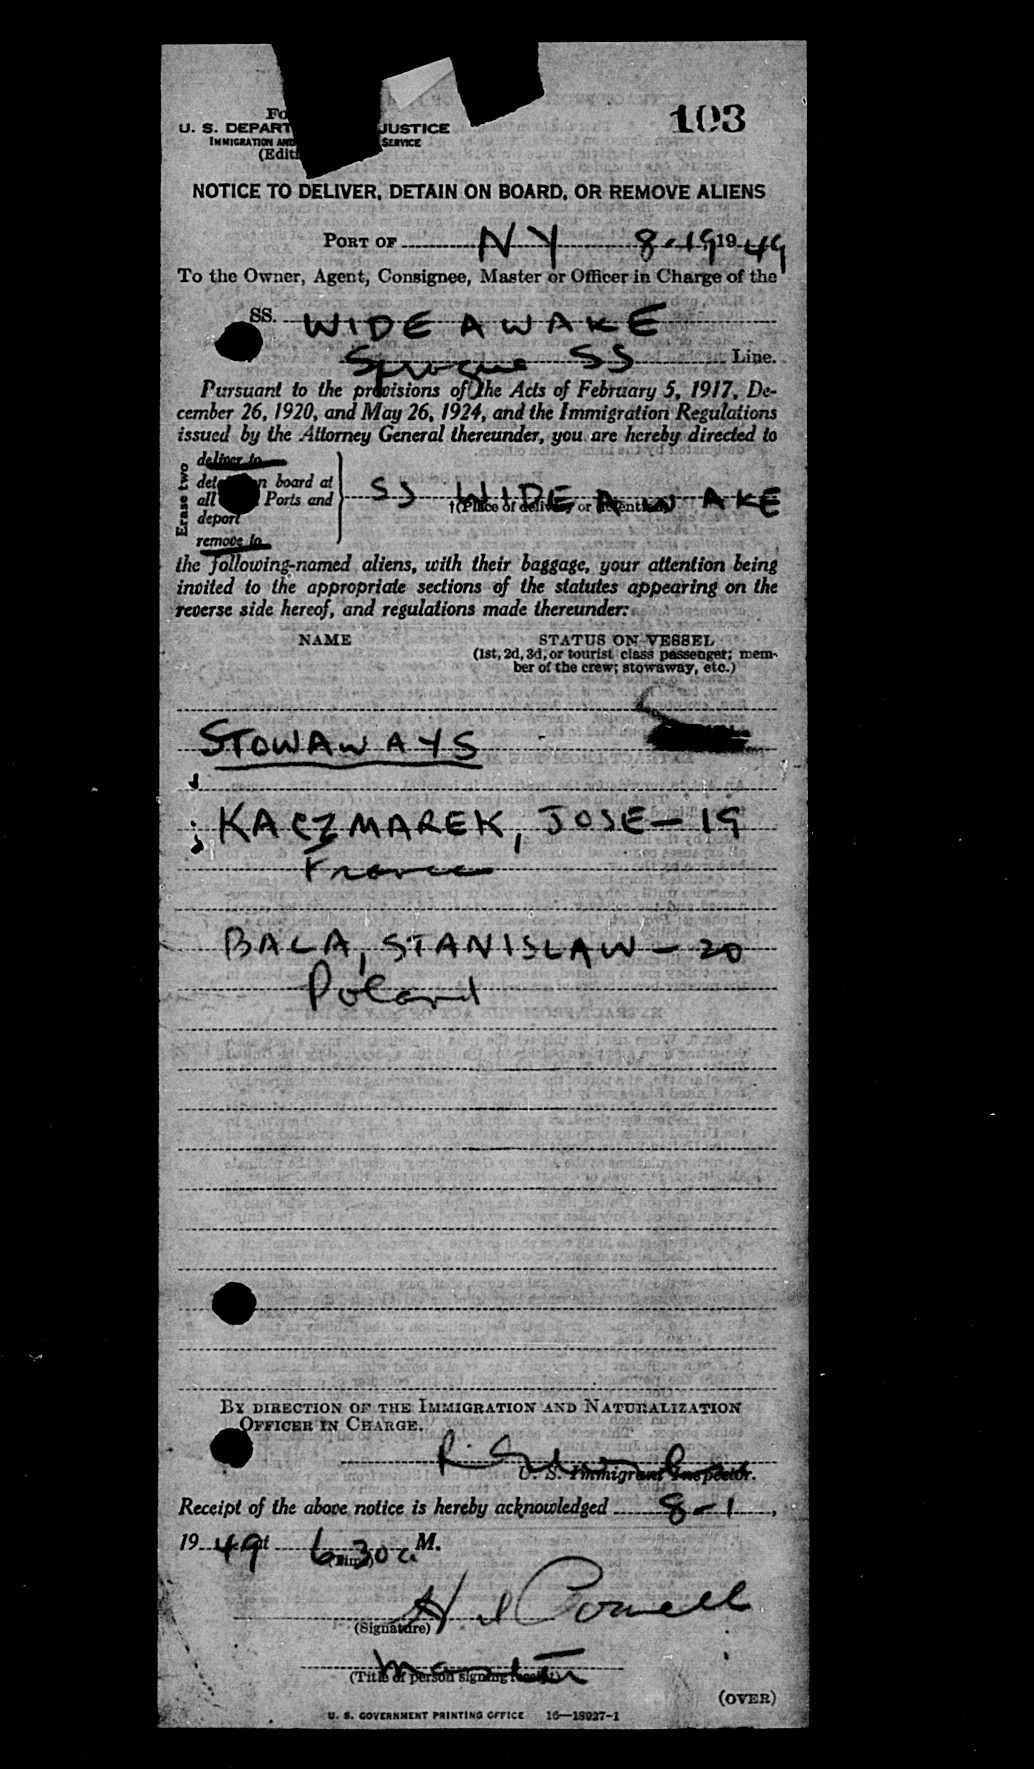 103
Fo
U. S. DEPART JUSTICE
IMMIGRATION AND SERVICE
(Editi
NOTICE TO DELIVER, DETAIN ON BOARD, OR REMOVE ALIENS
PORT OF NY 8-1 1949
To the Owner, Agent, Consignee, Master or Officer in Charge of the
SS. WIDE AWAKE
Sprague SS Line.
Pursuant to the provisions of the Acts of February 5, 1917, De-
cember 26, 1920, and May 26, 1924, and the Immigration Regulations
issued by the Attorney General thereunder, you are hereby directed to
Erase two
deliver to
det n board at
all Ports and
deport
remove to
SS WIDE AWAKE
†(Place of delivery or detention)
the following-named aliens, with their baggage, your attention being
invited to the appropriate sections of the statutes appearing on the
reverse side hereof, and regulations made thereunder:
NAME STATUS ON VESSEL
(1st, 2d, 3d, or tourist class passenger; mem-
ber of the crew; stowaway, etc.)
STOWAWAYS
KACZMAREK, JOSE - 19
France
BALA, STANISLAW - 20
Poland
BY DIRECTION OF THE IMMIGRATION AND NATURALIZATION
OFFICER IN CHARGE.
U. S. Immigrant Inspector.
Receipt of the above notice is hereby acknowledged 8-1,
1949 at 6:30 a M.
(Time)
H Powell
(Signature)
Master
(Title of person signing receipt)
(OVER)
U. S. GOVERNMENT PRINTING OFFICE 16—18027-1